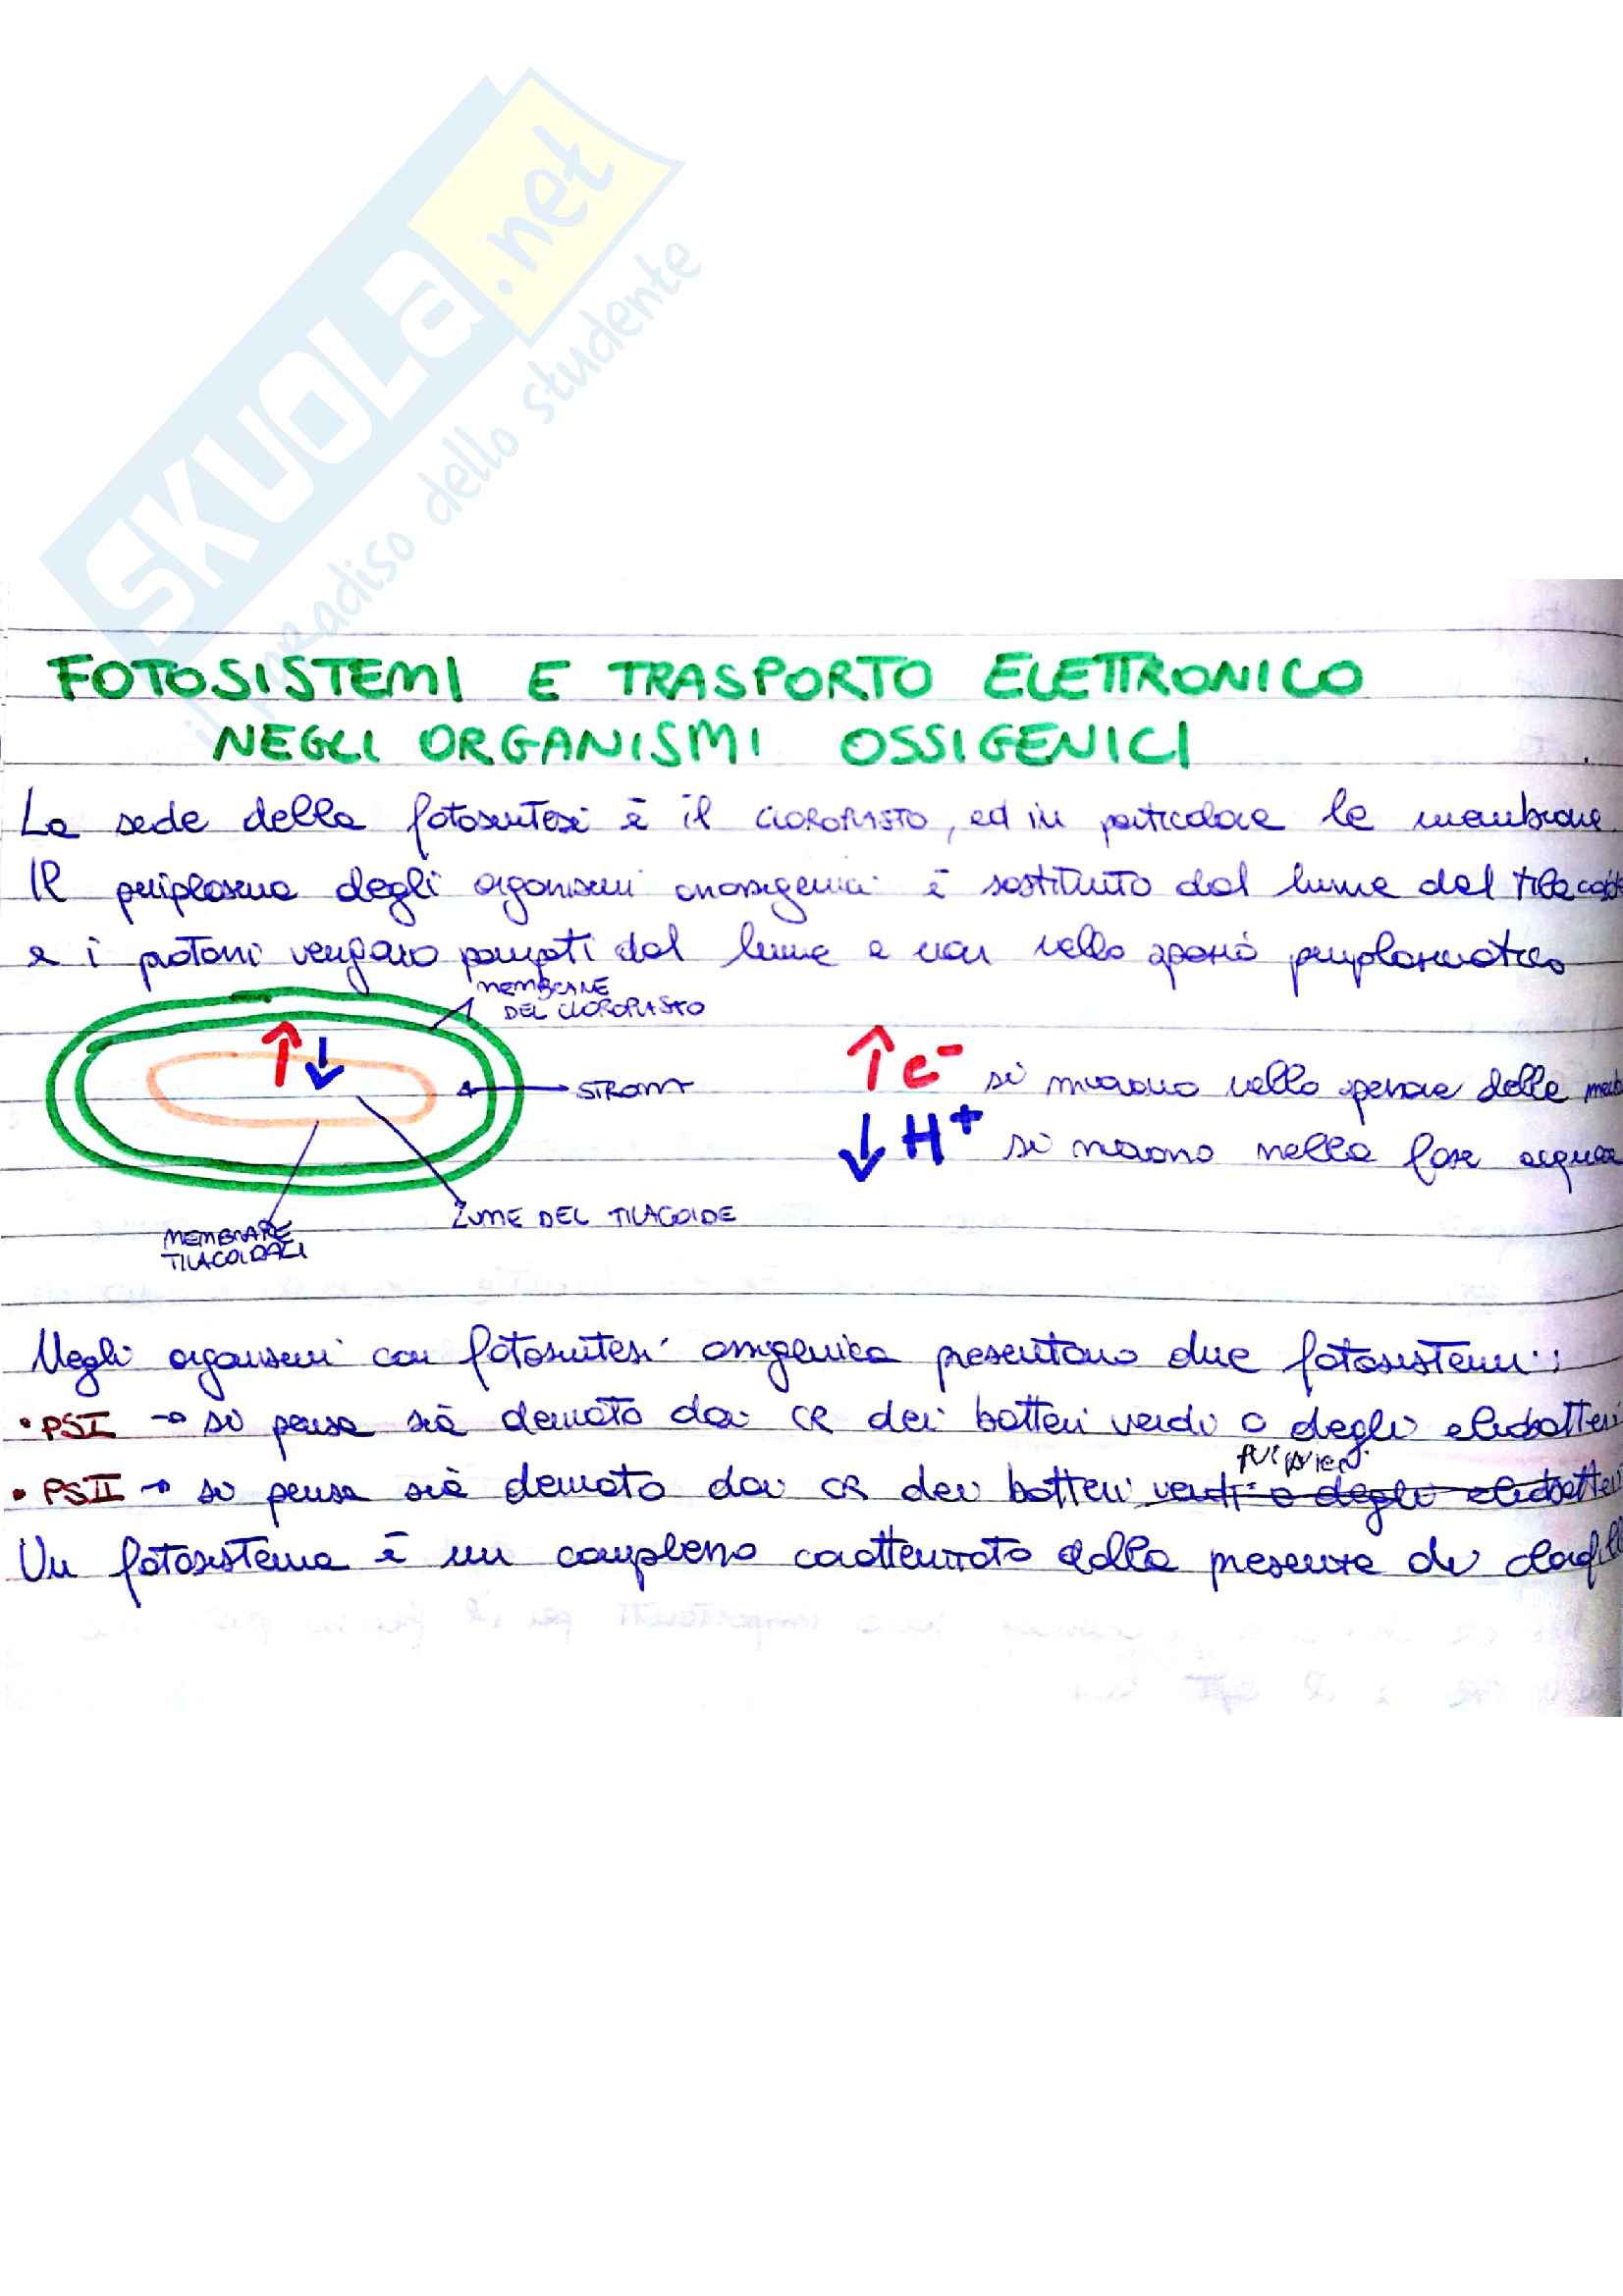 SKUOLA.net
il paradiso dello studente
FOTOSISTEMI E TRASPORTO ELETTRONICO
NEGLI ORGANISMI OSSIGENICI
La sede della fotosintesi è il CLOROPLASTO, ed in particolare le membrane
Il periplasma degli organismi anossigenici è sostituito dal lume del tilacoide
e i protoni vengono pompati dal lume e non nello spazio periplasmatico
MEMBRANE
DEL CLOROPLASTO
STROMA
↑ e⁻ si muovono nello spessore delle
↓ H⁺ si muovono nella fase acquosa
LUME DEL TILACOIDE
MEMBRANE
TILACOIDALI
Negli organismi con fotosintesi ossigenica presentano due fotosistemi:
• PSI → si pensa sia derivato dai CR dei batteri verdi o degli eliobatteri
purpurei
• PSII → si pensa sia derivato dai CR dei batteri verdi o degli eliobatteri
Un fotosistema è un complesso caratterizzato dalla presenza di